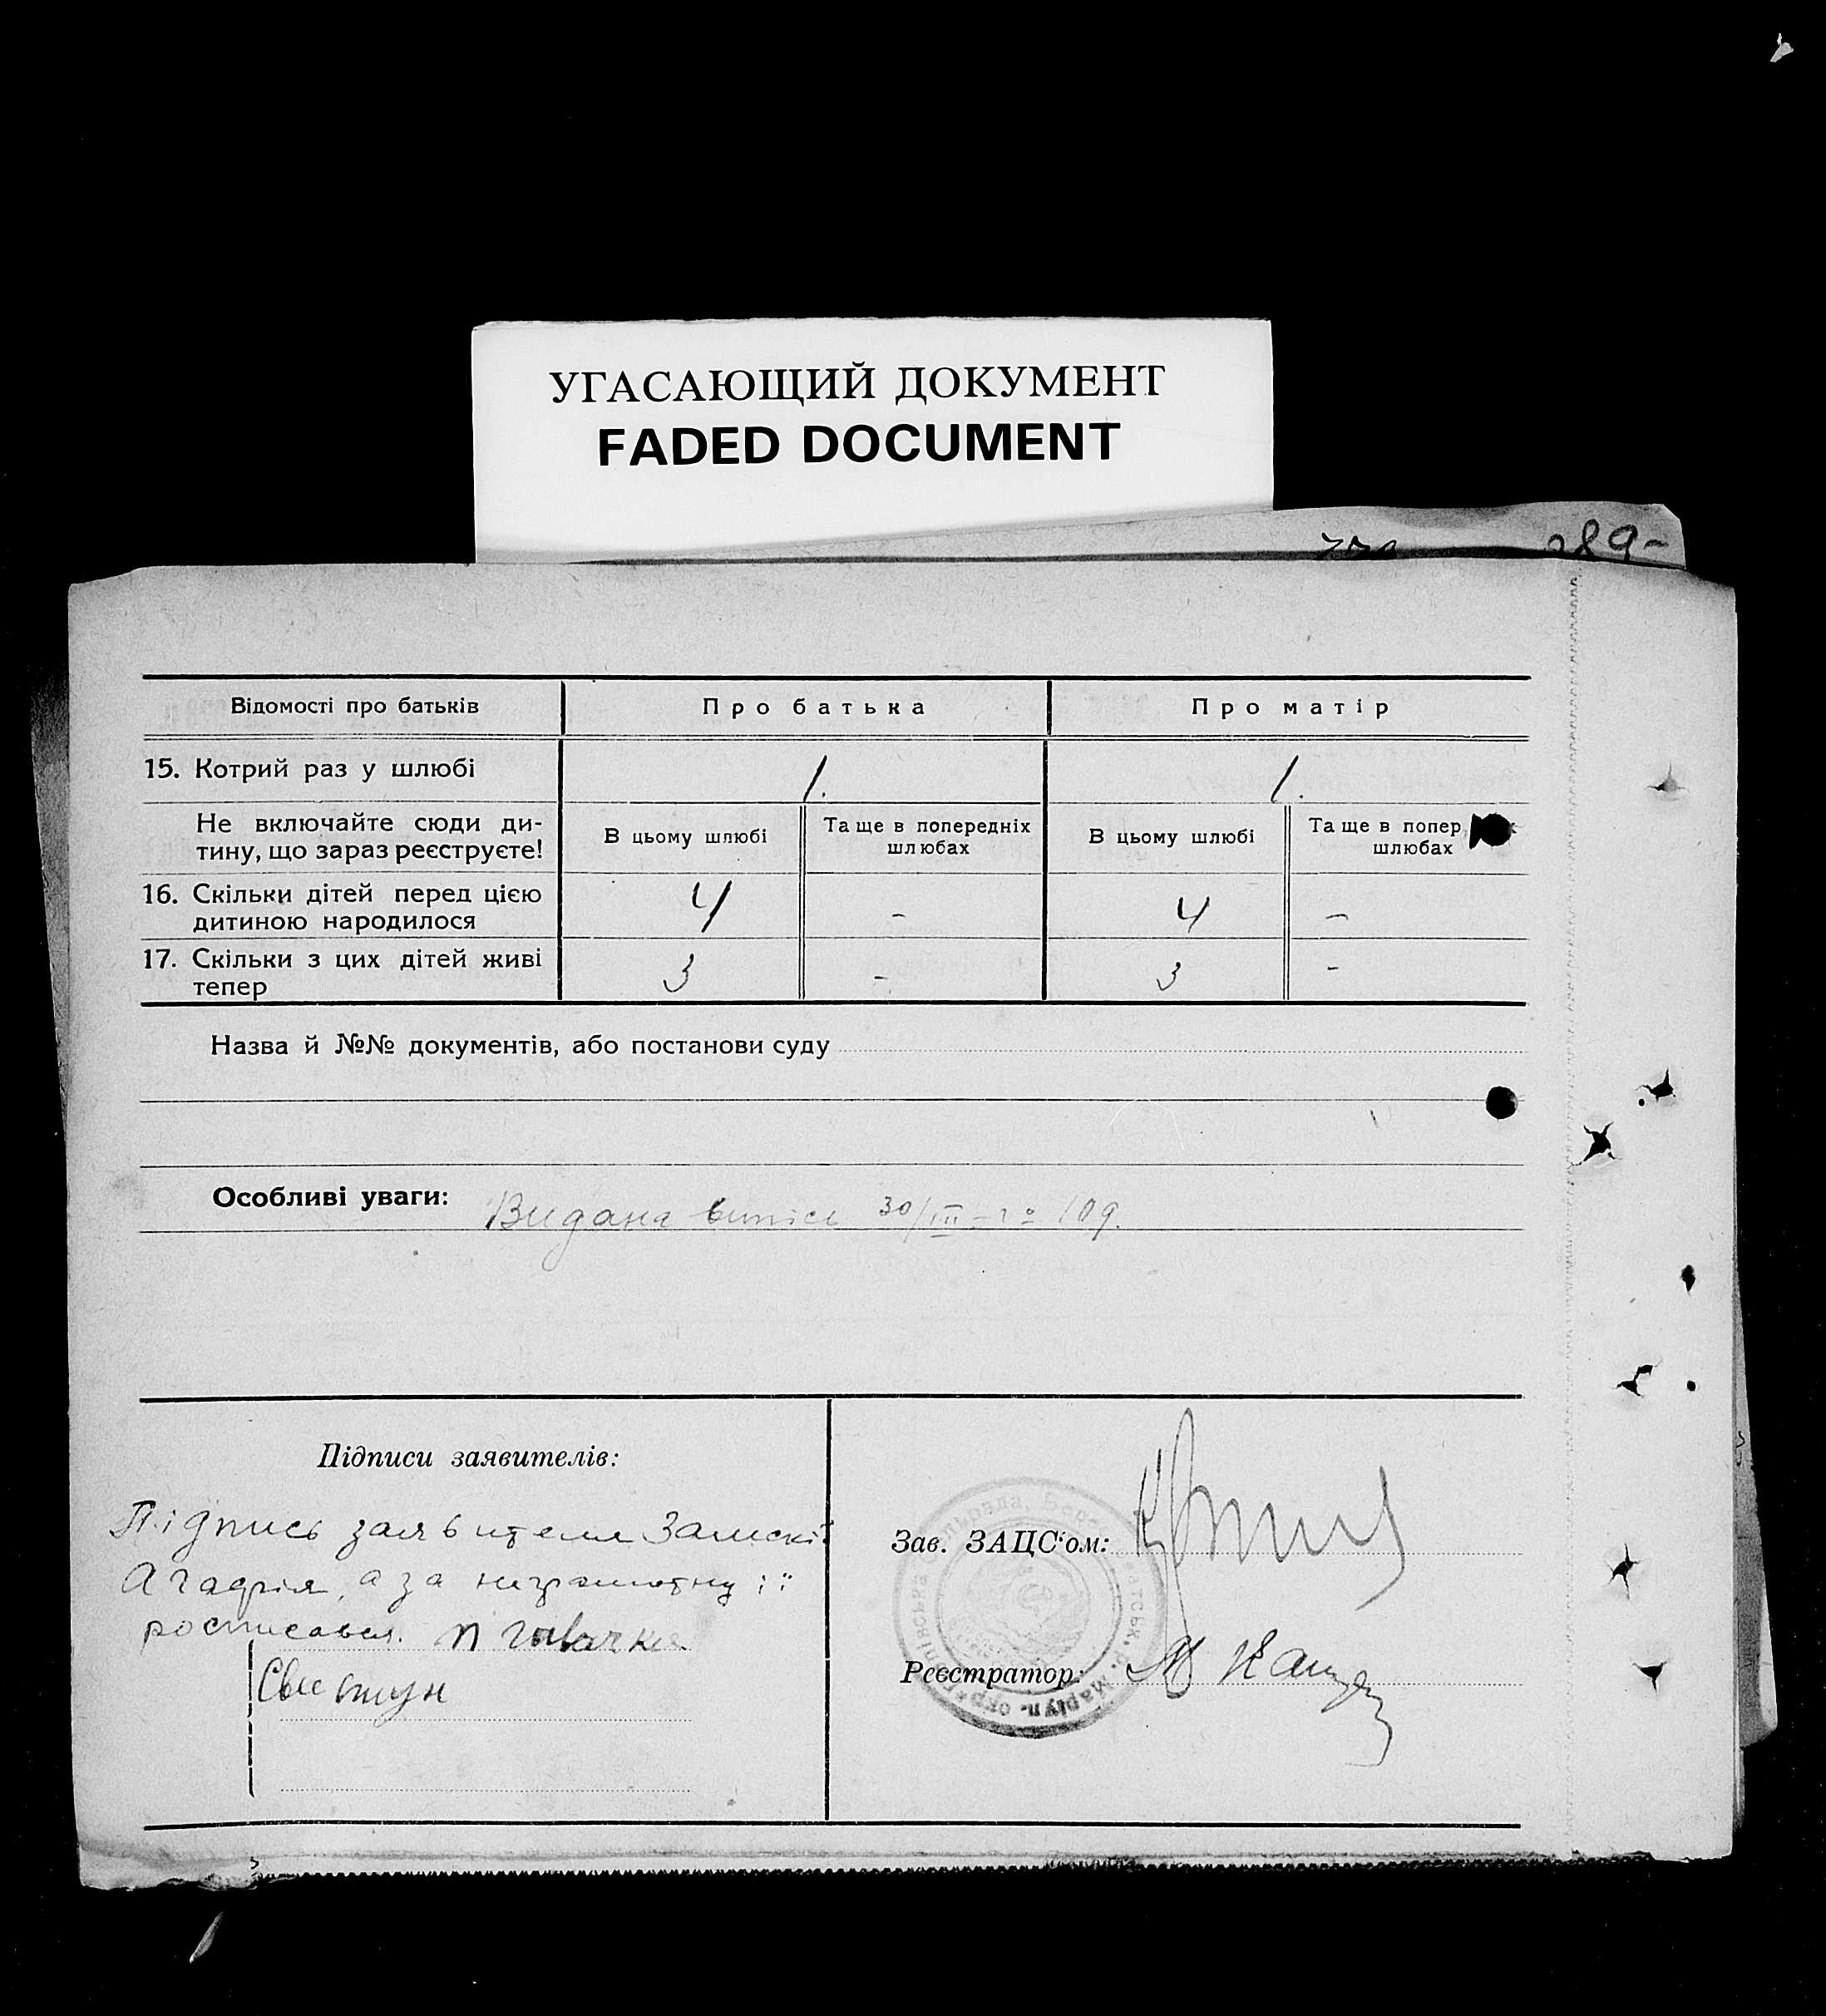 УГАСАЮЩИЙ ДОКУМЕНТ
FADED DOCUMENT
89-
Відомості про батьків
Про батька
Про матір
15. Котрий раз у шлюбі
1.
1.
Не включайте сюди ди-
тину, що зараз реєструєте!
В цьому шлюбі
Та ще в попередніх
шлюбах
В цьому шлюбі
Та ще в попер
шлюбах
16. Скільки дітей перед цією
дитиною народилося
4
-
4
-
17. Скільки з цих дітей живі
тепер
3
-
3
-
Назва й №№ документів, або постанови суду
Особливі уваги: Видана випісь 30/III
Підписи заявителів:
Підпись заявителя
а за неграмотну її
росписався.
Зав. ЗАЦС'ом:
Реєстратор:
Маріуп. окр.